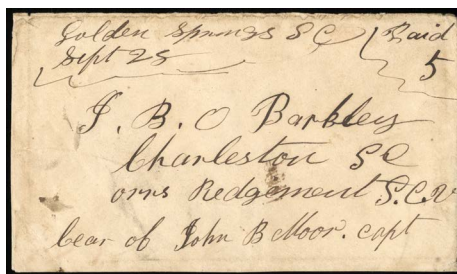 Golden Springs S C Paid
Sept 25 5
J. B. O Barkley
Charleston SC
orrs Redgement S.C.V
Cear of John B Moor. capt